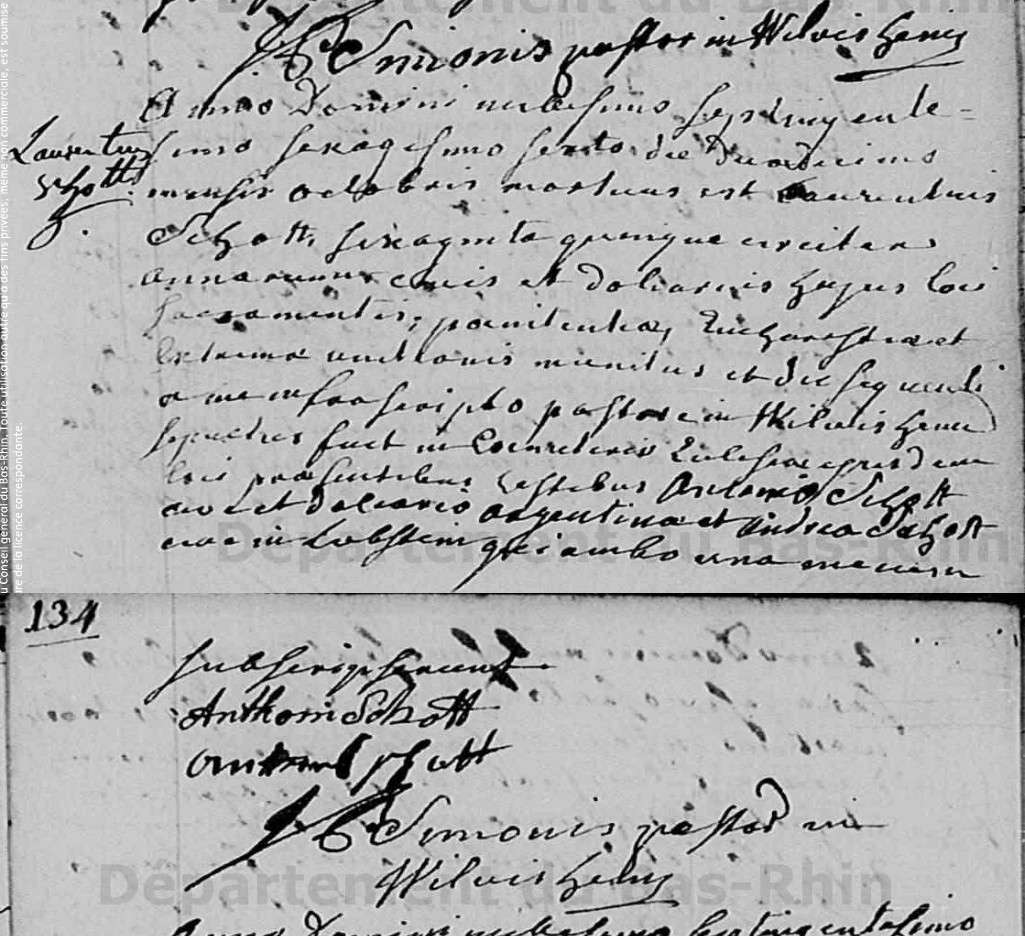 J C Simonis pastor in Wilwisheim
Anno Domini millesimo septingente=
Laurentius
Schott
simo sexagesimo sexto die duodecimo
mensis octobris mortuus est Laurentius
Schott, sexaginta quinque circiter
annorum civis et doliarius hujus loci
sacramentis, poenitentiae, Eucharistiae et
Extremae unctionis munitus et die sequenti
a me infra scripto pastore in Wilwisheim
sepultus fuit in Coemeterio Ecclesiae ejusdem
loci praesentibus testibus Antonio Schott
cive et doliario argentinae et Andrea Schott
cive in Lobstein qui ambo una mecum
134
subscripserunt
Anthoni Schott
schott
J C Simonis pastor in
Wilwisheim
Anno Domini millesimo septingentesimo
Département du Bas-Rhin
Département du Bas-Rhin
Département du Bas-Rhin
u Conseil général du Bas-Rhin. Toute utilisation autre qu'à des fins privées, même non commerciale, est soumise
re de la licence correspondante.